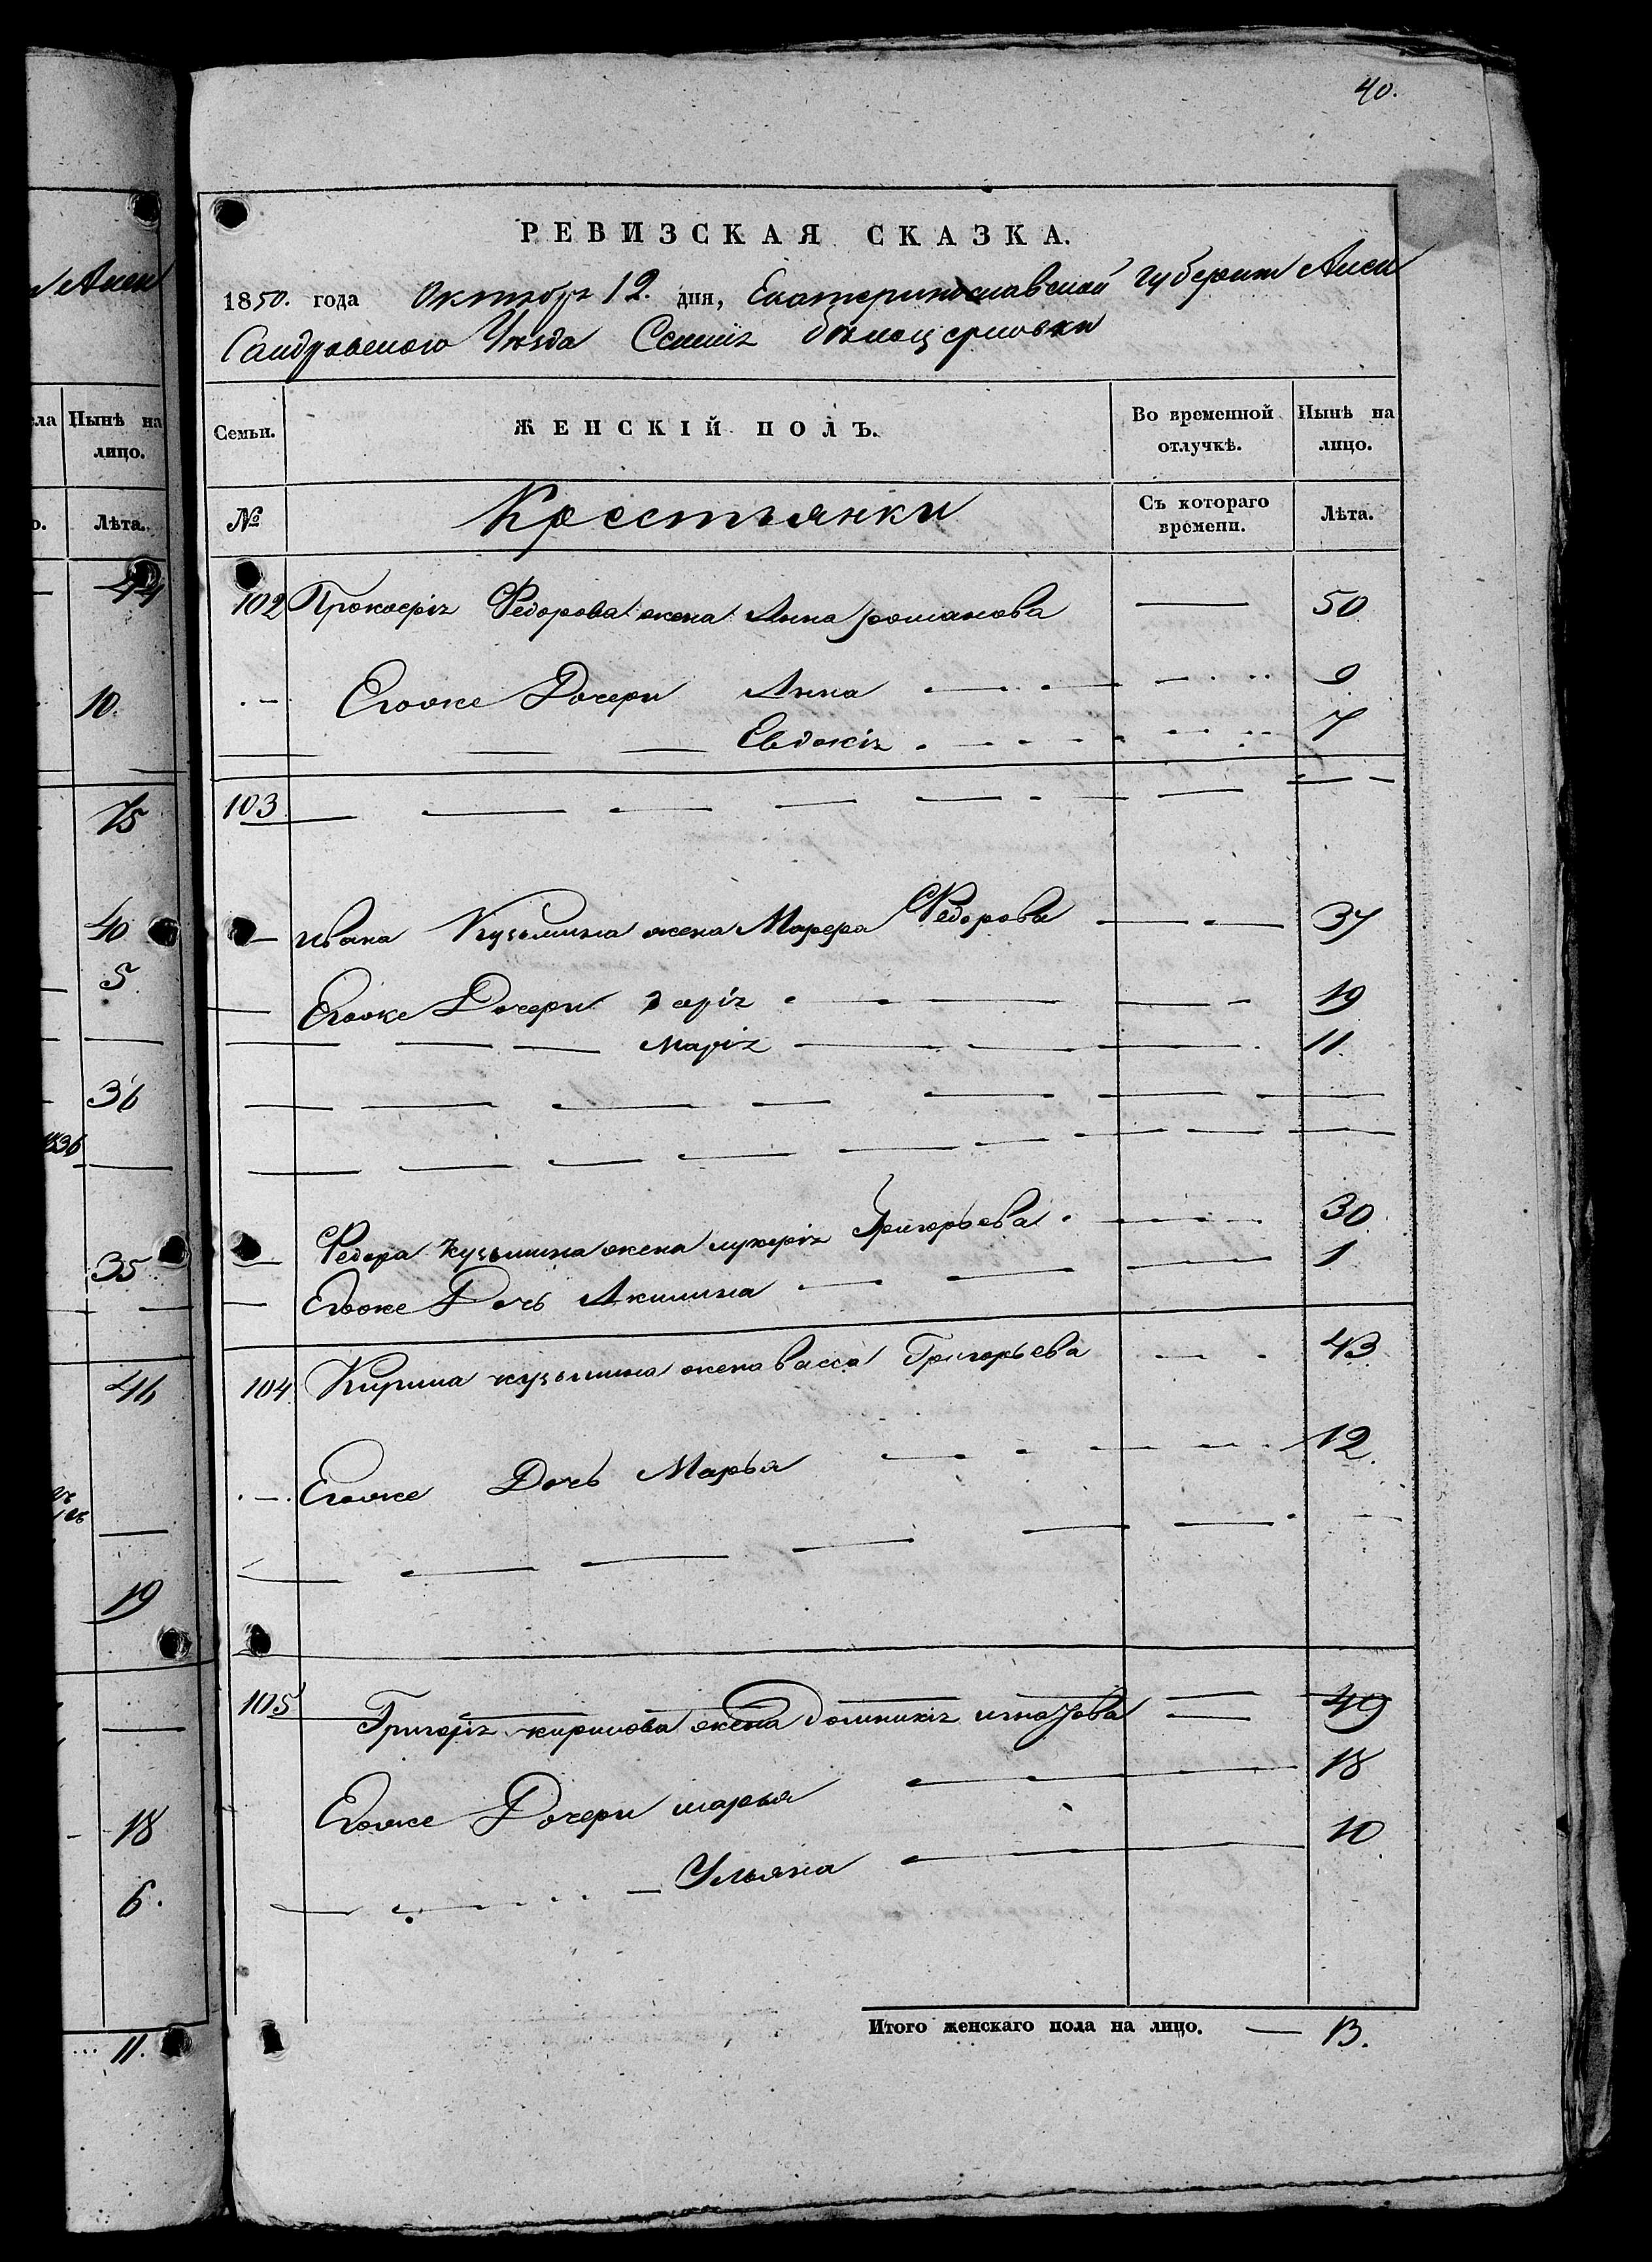 40.
РЕВИЗСКАЯ СКАЗКА.
1850. года Октября 12. дня, Екатеринославской Губерніи Алек
сандровского Уѣзда Селенія
Семьи.
ЖЕНСКІЙ ПОЛЪ.
Во временной отлучкѣ.
Нынѣ на лицо.
№
Крестьянки
Съ котораго времени.
Лѣта.
102 Прокофія Федорова жена Анна романова 50
Егоже Дочери Анна 9
Евдокія 7
103
ивана Кузьмина жена Марфа Федорова 37
Егоже Дочери 19
Марія 11.
Федора кузьмина жена лукерія Григорьева 30
Егоже Дочь Акилина 1
104 Кирила кузьмина жена васса Григорьева 43
Егоже Дочь Марья 12.
105 Григорія кирилова жена Домникія 49
Егоже Дочери марья 18
Ульяна 10
Итого женскаго пола на лицо. — 13.
Алек
ла
Нынѣ на лицо.
о.
Лѣта.
44
10.
75
40
5
36
836
35
46
19
18
6.
11.